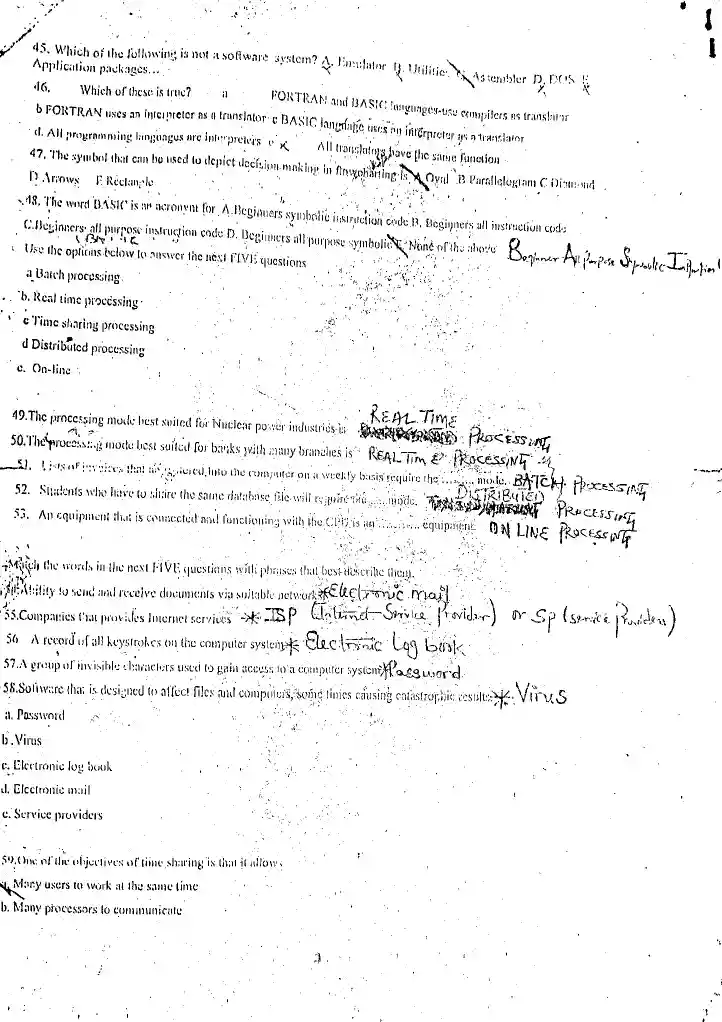 45. Which of the following is not a software system? A. Emulator B. Utilities C. Assembler D. DOS E
Application packages...
46. Which of these is true? a FORTRAN and BASIC languages use compilers as translator
b FORTRAN uses an interpreter as a translator c BASIC language uses an interpreter as a translator
d. All programming languages are interpreters e All translators have the same function
47. The symbol that can be used to depict decision making in flowcharting is A Oval B Parallelogram C Diamond
D Arrows E Rectangle
48. The word BASIC is an acronym for A.Beginners symbolic instruction code B. Beginners all instruction code
C.Beginners all purpose instruction code D. Beginners all purpose symbolic E. None of the above Beginner All Purpose Symbolic
Use the options below to answer the next FIVE questions
a Batch processing
b. Real time processing
c Time sharing processing
d Distributed processing
e. On-line
49.The processing mode best suited for Nuclear power industries is REAL TIME PROCESSING
50.The processing mode best suited for banks with many branches is REAL TIME PROCESSING
51. Lists of invoices that are entered into the computer on a weekly basis require the ......... mode. BATCH PROCESSING
52. Students who have to share the same database file will require the ...... mode. DISTRIBUTED PROCESSING
53. An equipment that is connected and functioning with the CPU is an ........... equipment ON LINE PROCESSING
Match the words in the next FIVE questions with phrases that best describe them.
Ability to send and receive documents via suitable network * Electronic mail
55.Companies that provides Internet services * ISP (Internet Service Provider) or Sp (service Providers)
56 A record of all keystrokes on the computer system * Electronic Log book
57.A group of invisible characters used to gain access to a computer system * Password
58.Software that is designed to affect files and computers, some times causing catastrophic results * Virus
a. Password
b .Virus
c. Electronic log book
d. Electronic mail
e. Service providers
59.One of the objectives of time sharing is that it allows
a. Many users to work at the same time
b. Many processors to communicate
3